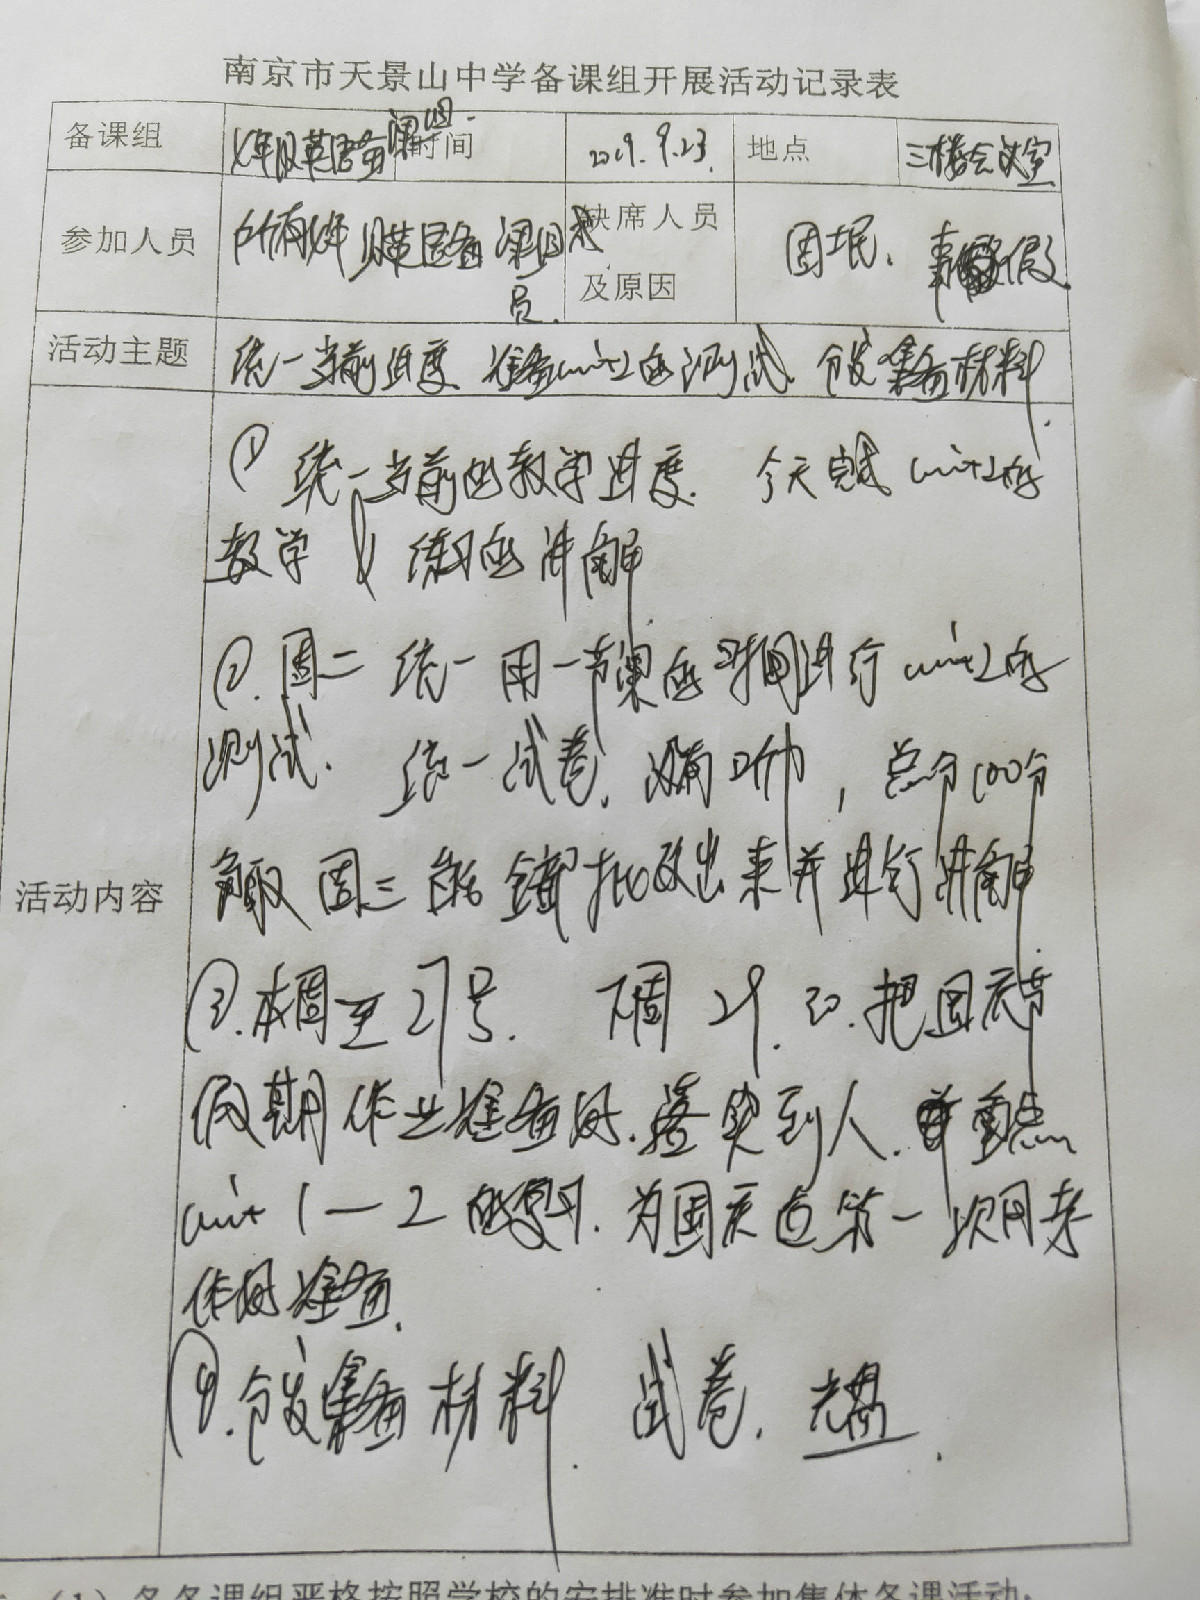 南京市天景山中学备课组开展活动记录表
备课组 七年级英语备课组 时间 2019.9.23. 地点 三楼会议室
参加人员 所有七年级英语备课组成员. 缺席人员及原因 事假
活动主题 统一当前进度 准备unit2的测试. 分发集备材料.
活动内容
① 统一当前的教学进度. 今天完成unit2的
教学及练习的讲解
②. 周二统一用一节课的时间进行unit2的
测试. 统一试卷. 没有听力, 总分100分
争取周三能全部批改出来并进行讲解
③. 本周至27号. 下周29. 30. 把国庆节
假期作业准备好. 落实到人. 重点
unit 1—2的复习. 为国庆后第一次月考
作好准备.
④. 分发集备材料. 试卷. 光盘.
(1) 各备课组严格按照学校的安排准时参加集体备课活动;